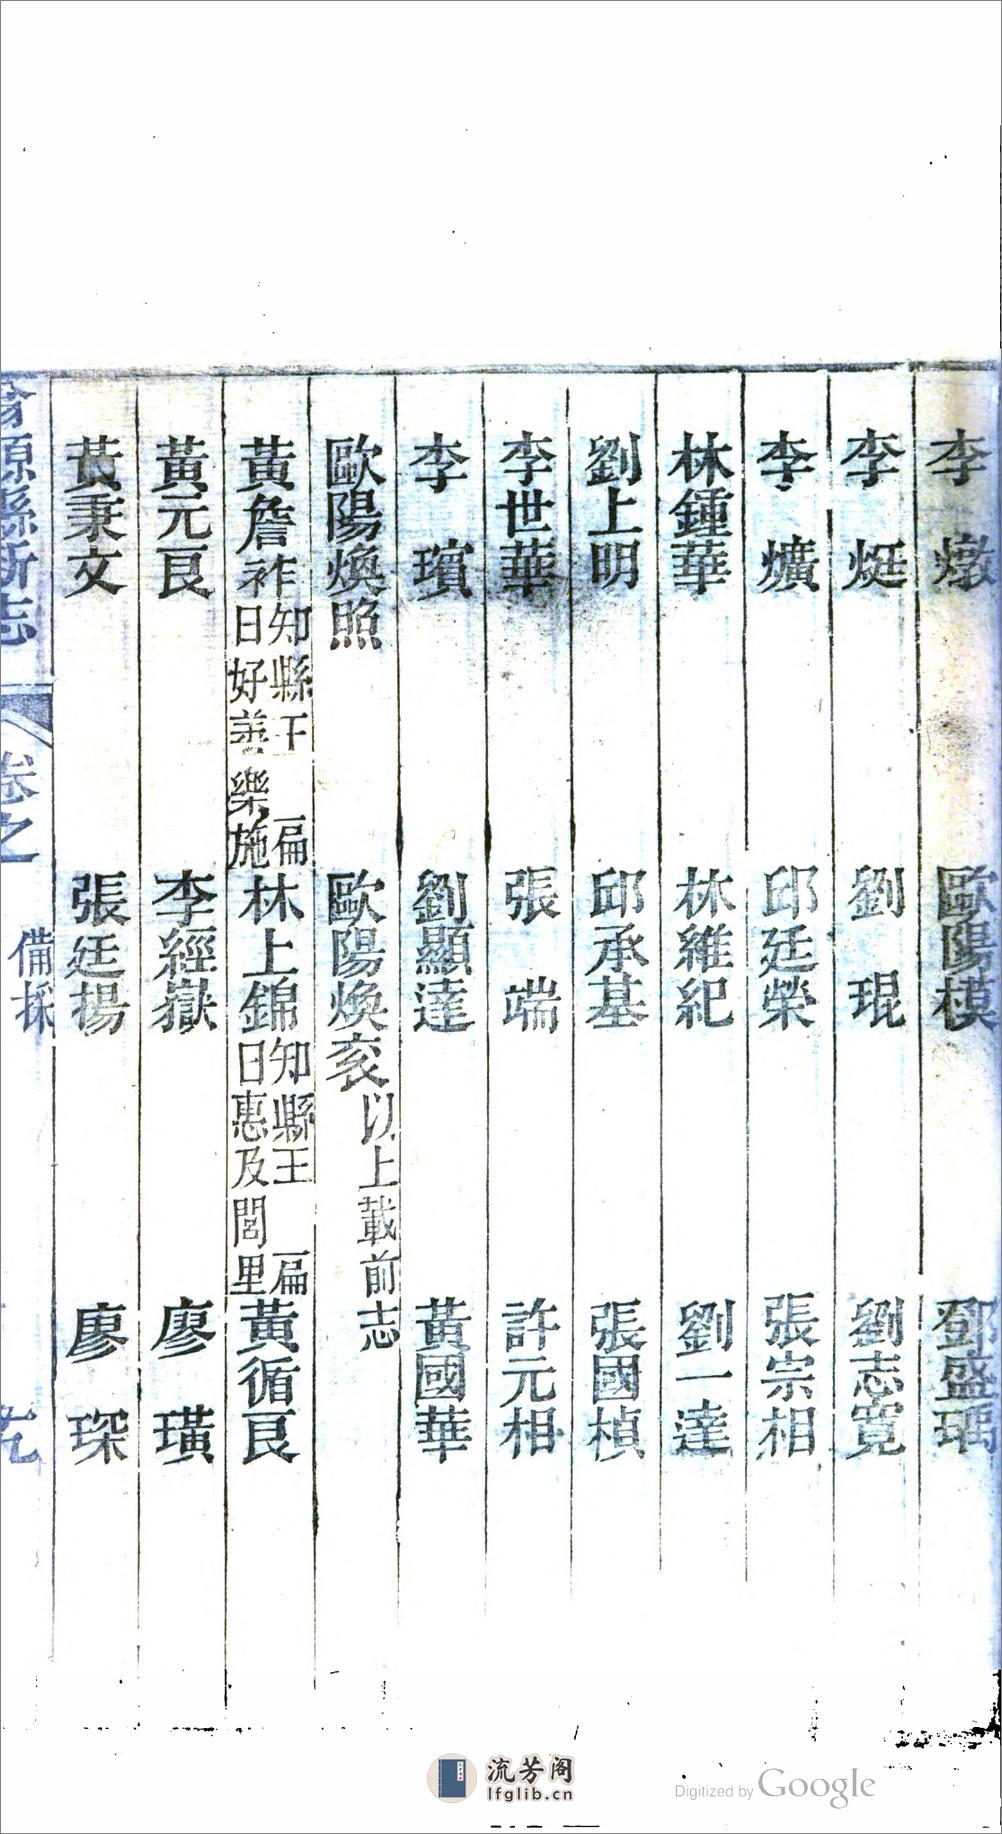 李燉 歐陽模 鄧盛瑀
李烻 劉琨 劉志寬
李爌 邱廷榮 張宗相
林鍾華 林維紀 劉一達
劉上明 邱承基 張國楨
李世華 張端 許元相
李璸 劉顯達 黃國華
歐陽煥照 歐陽煥衮以上載前志
黃詹祚知縣王 扁曰好善樂施 林上錦知縣王 扁曰惠及閭里 黃循良
黃元良 李經嶽 廖璜
黃秉文 張廷揚 廖琛
翁源縣新志 卷之 備採
流芳阁
lfglib.cn
Digitized by Google